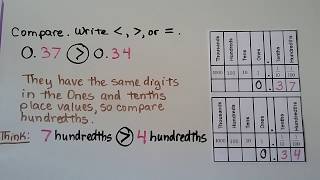 Compare. Write <, >, or =.
0.37 > 0.34
They have the same digits
in the Ones and tenths
place values, so compare
hundredths.
Think: 7 hundredths > 4 hundredths
Thousands Hundreds Tens Ones . Tenths Hundredths
1000 100 10 1
0 . 3 7
Thousands Hundreds Tens Ones . Tenths Hundredths
1000 100 10 1
0 . 3 4